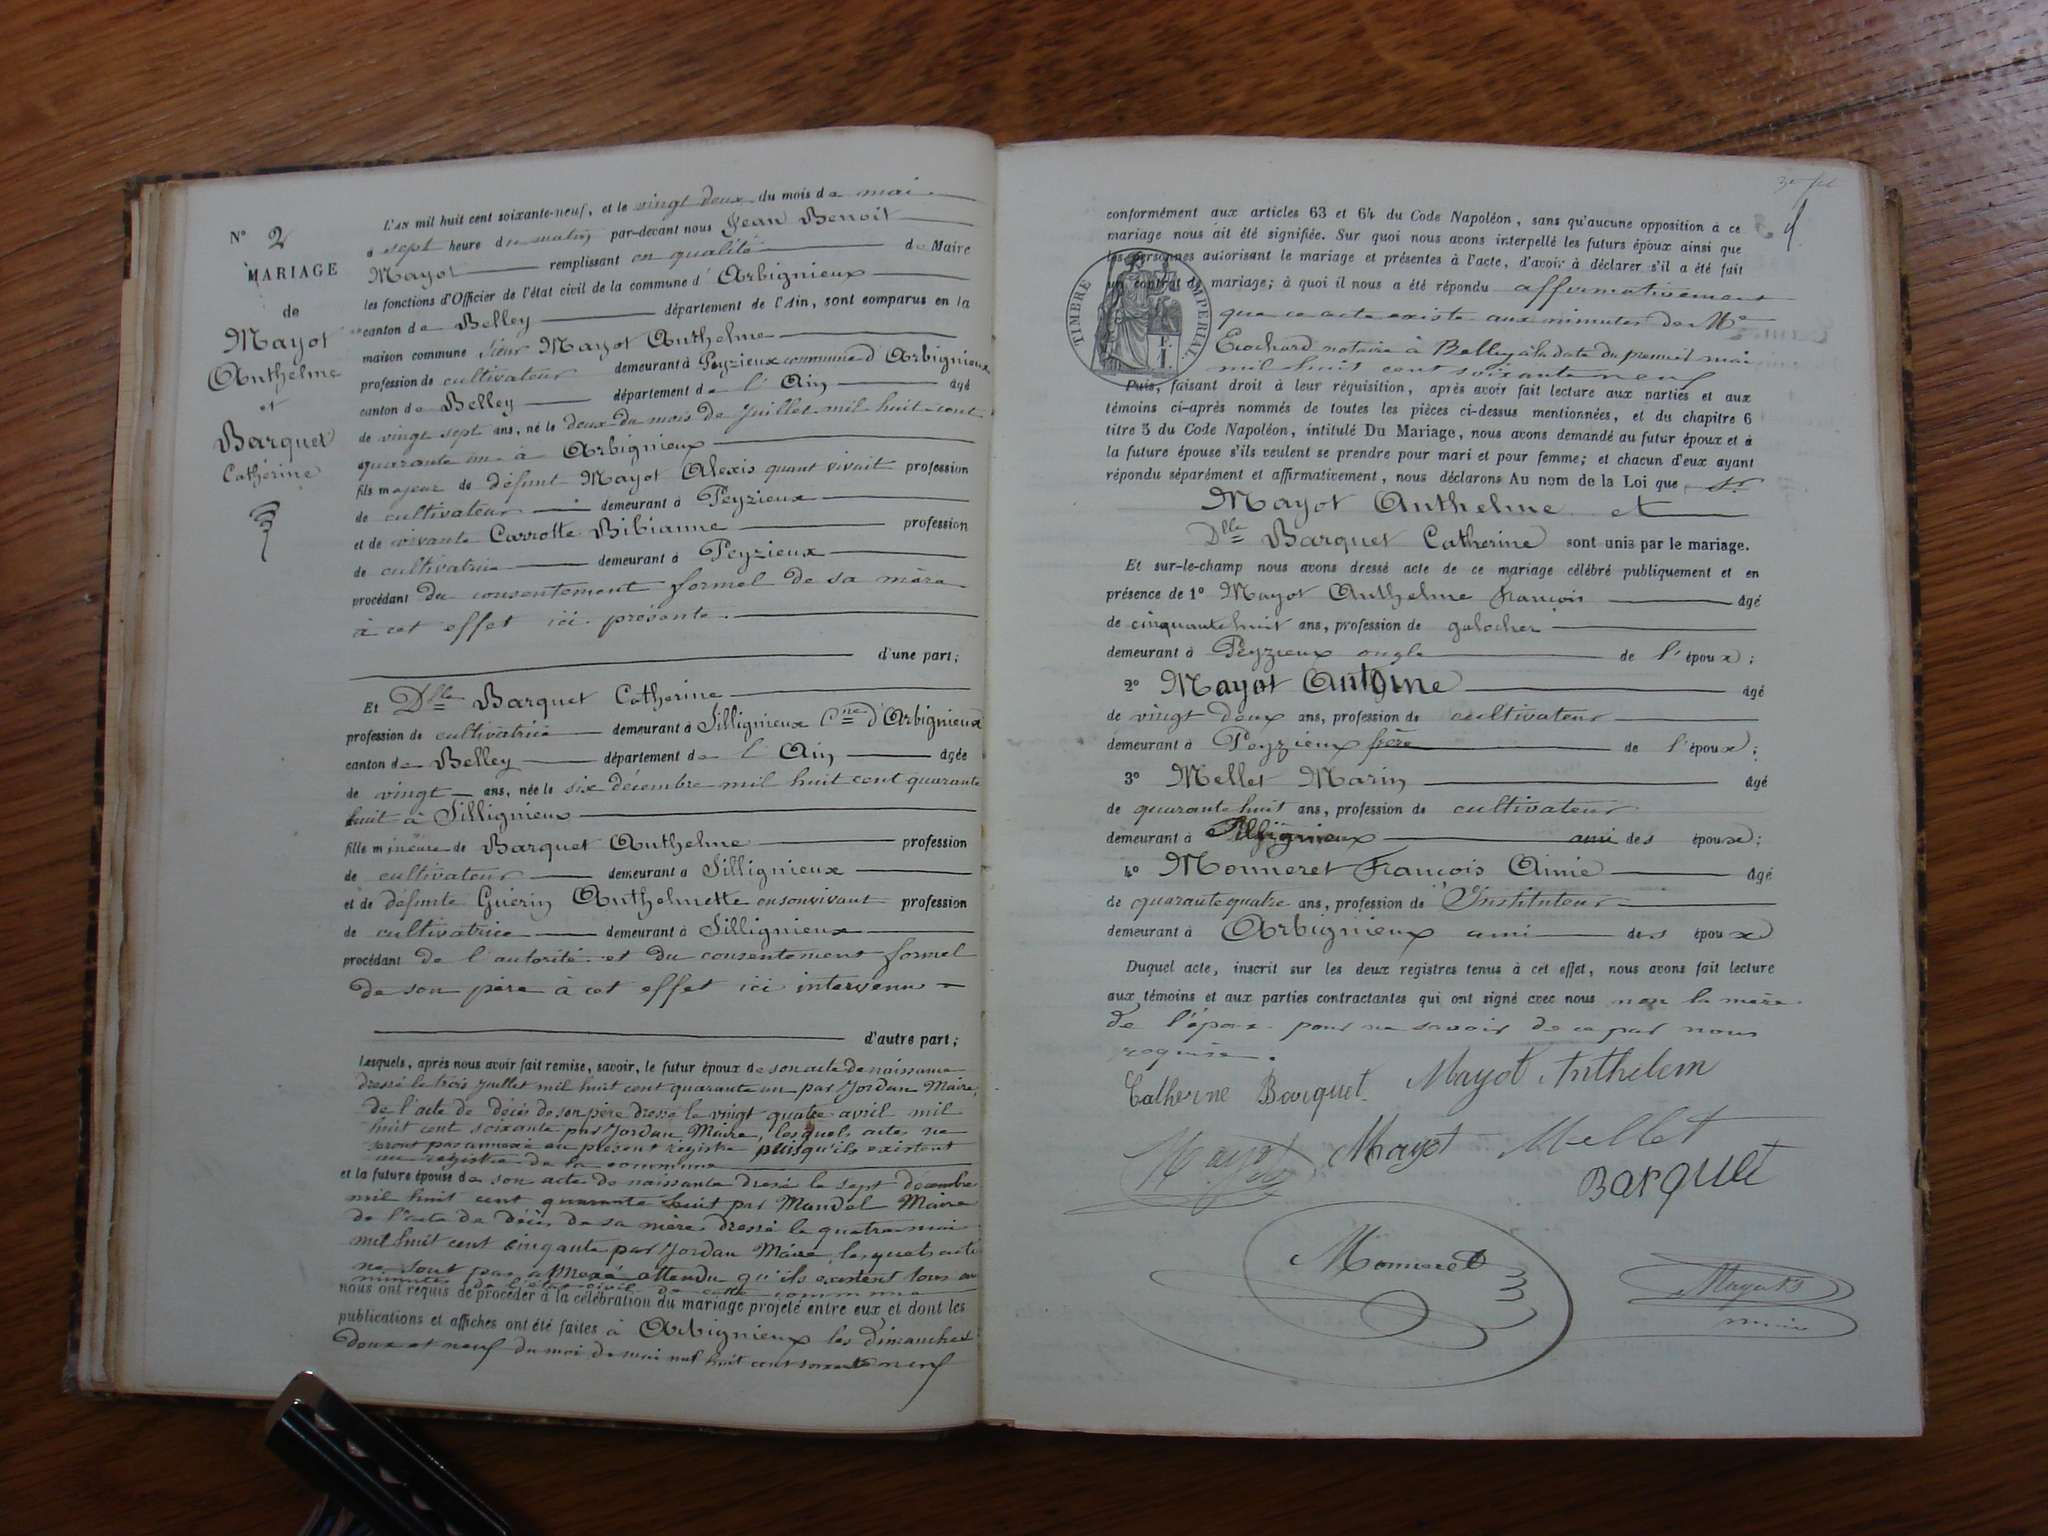 N° 2
MARIAGE
de
Mayot
Anthelme
et
Barquet
Catherine
L'an mil huit cent soixante-neuf, et le vingt deux du mois de mai
à sept heure du matin par-devant nous Jean Benoit
Mayot remplissant en qualité de Maire
les fonctions d'Officier de l'état civil de la commune d'Arbignieux
canton de Belley département de l'Ain, sont comparus en la
maison commune sieur Mayot Anthelme
profession de cultivateur demeurant à Peyzieux commune d'Arbignieux
canton de Belley département de l'Ain âgé
de vingt sept ans, né le deux du mois de Juillet mil huit cent
quarante un à Arbignieux
fils majeur de défunt Mayot Alexis quant vivait profession
de cultivateur demeurant à Peyzieux
et de vivante Carrotte Bibianne profession
de cultivatrice demeurant à Peyzieux
procédant du consentement formel de sa mère
à cet effet ici présente
d'une part;
Et Dlle Barquet Catherine
profession de cultivatrice demeurant à Sillignieux Cne d'Arbignieux
canton de Belley département de l'Ain âgée
de vingt ans, née le six décembre mil huit cent quarante
huit à Sillignieux
fille mineure de Barquet Anthelme profession
de cultivateur demeurant à Sillignieux
et de défunte Guérin Anthelmette en son vivant profession
de cultivatrice demeurant à Sillignieux
procédant de l'autorité et du consentement formel
de son père à cet effet ici intervenu
d'autre part;
Lesquels, après nous avoir fait remise, savoir, le futur époux de son acte de naissance
dressé le trois Juillet mil huit cent quarante un par Jordan Maire,
de l'acte de décès de son père dressé le vingt quatre avril mil
huit cent soixante par Jordan Maire, lesquels actes ne
seront pas annexé au présent registre puisqu'ils existent
au registre de la commune
et la future épouse de son acte de naissance dressé le sept décembre
mil huit cent quarante huit par Mandel Maire
de l'acte de décès de sa mère dressé le quatre mai
mil huit cent cinqante par Jordan Maire, lesquels acte
ne sont pas annexé attendu qu'ils existent tous au
minutes de l'état civil de cette commune
nous ont requis de procéder à la célébration du mariage projeté entre eux et dont les
publications et affiches ont été faites à Arbignieux les dimanches
deux et neuf du moi de mai mil huit cent soixante neuf
conformément aux articles 63 et 64 du Code Napoléon, sans qu'aucune opposition à ce
mariage nous ait été signifiée. Sur quoi nous avons interpellé les futurs époux ainsi que
les personnes autorisant le mariage et présentes à l'acte, d'avoir à déclarer s'il a été fait
un contrat de mariage; à quoi il nous a été répondu affirmativement
que ce acte existe aux minutes de Me
Crochard notaire à Belley à la date du premier mai
mil huit cent soixante neuf
TIMBRE IMPERIAL
Puis, faisant droit à leur réquisition, après avoir fait lecture aux parties et aux
témoins ci-après nommés de toutes les pièces ci-dessus mentionnées, et du chapitre 6
titre 5 du Code Napoléon, intitulé Du Mariage, nous avons demandé au futur époux et à
la future épouse s'ils veulent se prendre pour mari et pour femme; et chacun d'eux ayant
répondu séparément et affirmativement, nous déclarons Au nom de la Loi que Sr
Mayot Anthelme et
Dlle Barquet Catherine sont unis par le mariage.
Et sur-le-champ nous avons dressé acte de ce mariage célébré publiquement et en
présence de 1° Mayot Anthelme François âgé
de cinquante huit ans, profession de galocher
demeurant à Peyzieux oncle de l'époux;
2° Mayot Antoine âgé
de vingt deux ans, profession de cultivateur
demeurant à Peyzieux frère de l'époux;
3° Mellet Marin âgé
de quarante huit ans, profession de cultivateur
demeurant à ami des époux;
4° Monneret François Aimé âgé
de quarante quatre ans, profession de Instituteur
demeurant à Arbignieux ami des époux
Duquel acte, inscrit sur les deux registres tenus à cet effet, nous avons fait lecture
aux témoins et aux parties contractantes qui ont signé avec nous non la mère
de l'époux pour ne savoir de ce par nous
requise.
Catherine Barquet Mayot Anthelem
Mayot Mayot Mellet
Barquet
Monneret
Mayot
maire